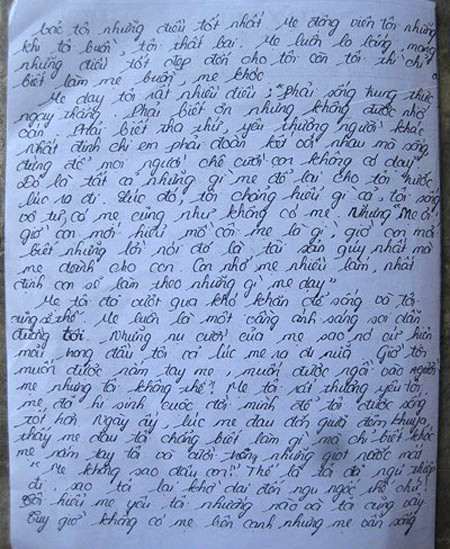 bảo tôi những điều tốt nhất. Mẹ động viên tôi những
khi tôi buồn, tôi thất bại. Mẹ luôn lo lắng, mang
những điều tốt đẹp đến cho tôi còn tôi thì chỉ
biết làm mẹ buồn, mẹ khóc
Mẹ dạy tôi rất nhiều điều: "Phải sống trung thực,
ngay thẳng. Phải biết ơn nhưng không được nhớ
oán. Phải biết tha thứ, yêu thương người khác.
Nhất định chị em phải đoàn kết với nhau mà sống
đừng để mọi người chê cười con không có dạy"
Đó là tất cả những gì mẹ để lại cho tôi trước
lúc ra đi. Lúc đó, tôi chẳng hiểu gì cả, tôi sống
vô tư, có mẹ cũng như không có mẹ. Nhưng Mẹ ơi!
giờ con mới hiểu mồ côi mẹ là gì, giờ con mới
biết những lời nói đó là tài sản quý nhất mà
mẹ dành cho con. Con nhớ mẹ nhiều lắm, nhất
định con sẽ làm theo những gì mẹ dạy"
Mẹ tôi đã vượt qua khó khăn để sống và tôi
cũng sẽ thế. Mẹ luôn là một vầng ánh sáng soi dẫn
đường tôi. Nhưng nụ cười của mẹ sao nó cứ hiện
mãi trong đầu tôi cả lúc mẹ ra đi nữa. Giờ tôi
muốn được nắm tay mẹ, muốn được ngồi vào người
mẹ nhưng tôi không thể"! Mẹ tôi rất thương yêu tôi,
mẹ đã hi sinh cuộc đời mình để tôi được sống
tốt hơn. Ngày ấy, lúc mẹ đau đớn giữa đêm khuya,
thấy mẹ đau tôi chẳng biết làm gì mà chỉ biết khóc
mẹ nắm tay tôi và cười trong những giọt nước mắt
"Mẹ không sao đâu con"! Thế là tôi đã ngủ thiếp
đi. sao tôi lại khờ dại đến ngu ngốc thế chứ!
Tôi hiểu mẹ yêu tôi nhường nào và tôi cũng vậy
Tuy giờ không có mẹ bên cạnh nhưng mẹ vẫn sống